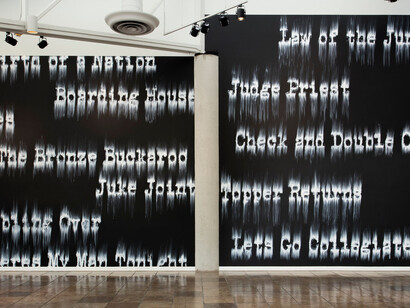 of a Nation
Boarding House
s
The Bronze Buckaroo
Juke Joint
Over
Man
Law of the Ju
Judge Priest
Check and Double C
Topper Returns
Lets Go Collegiate